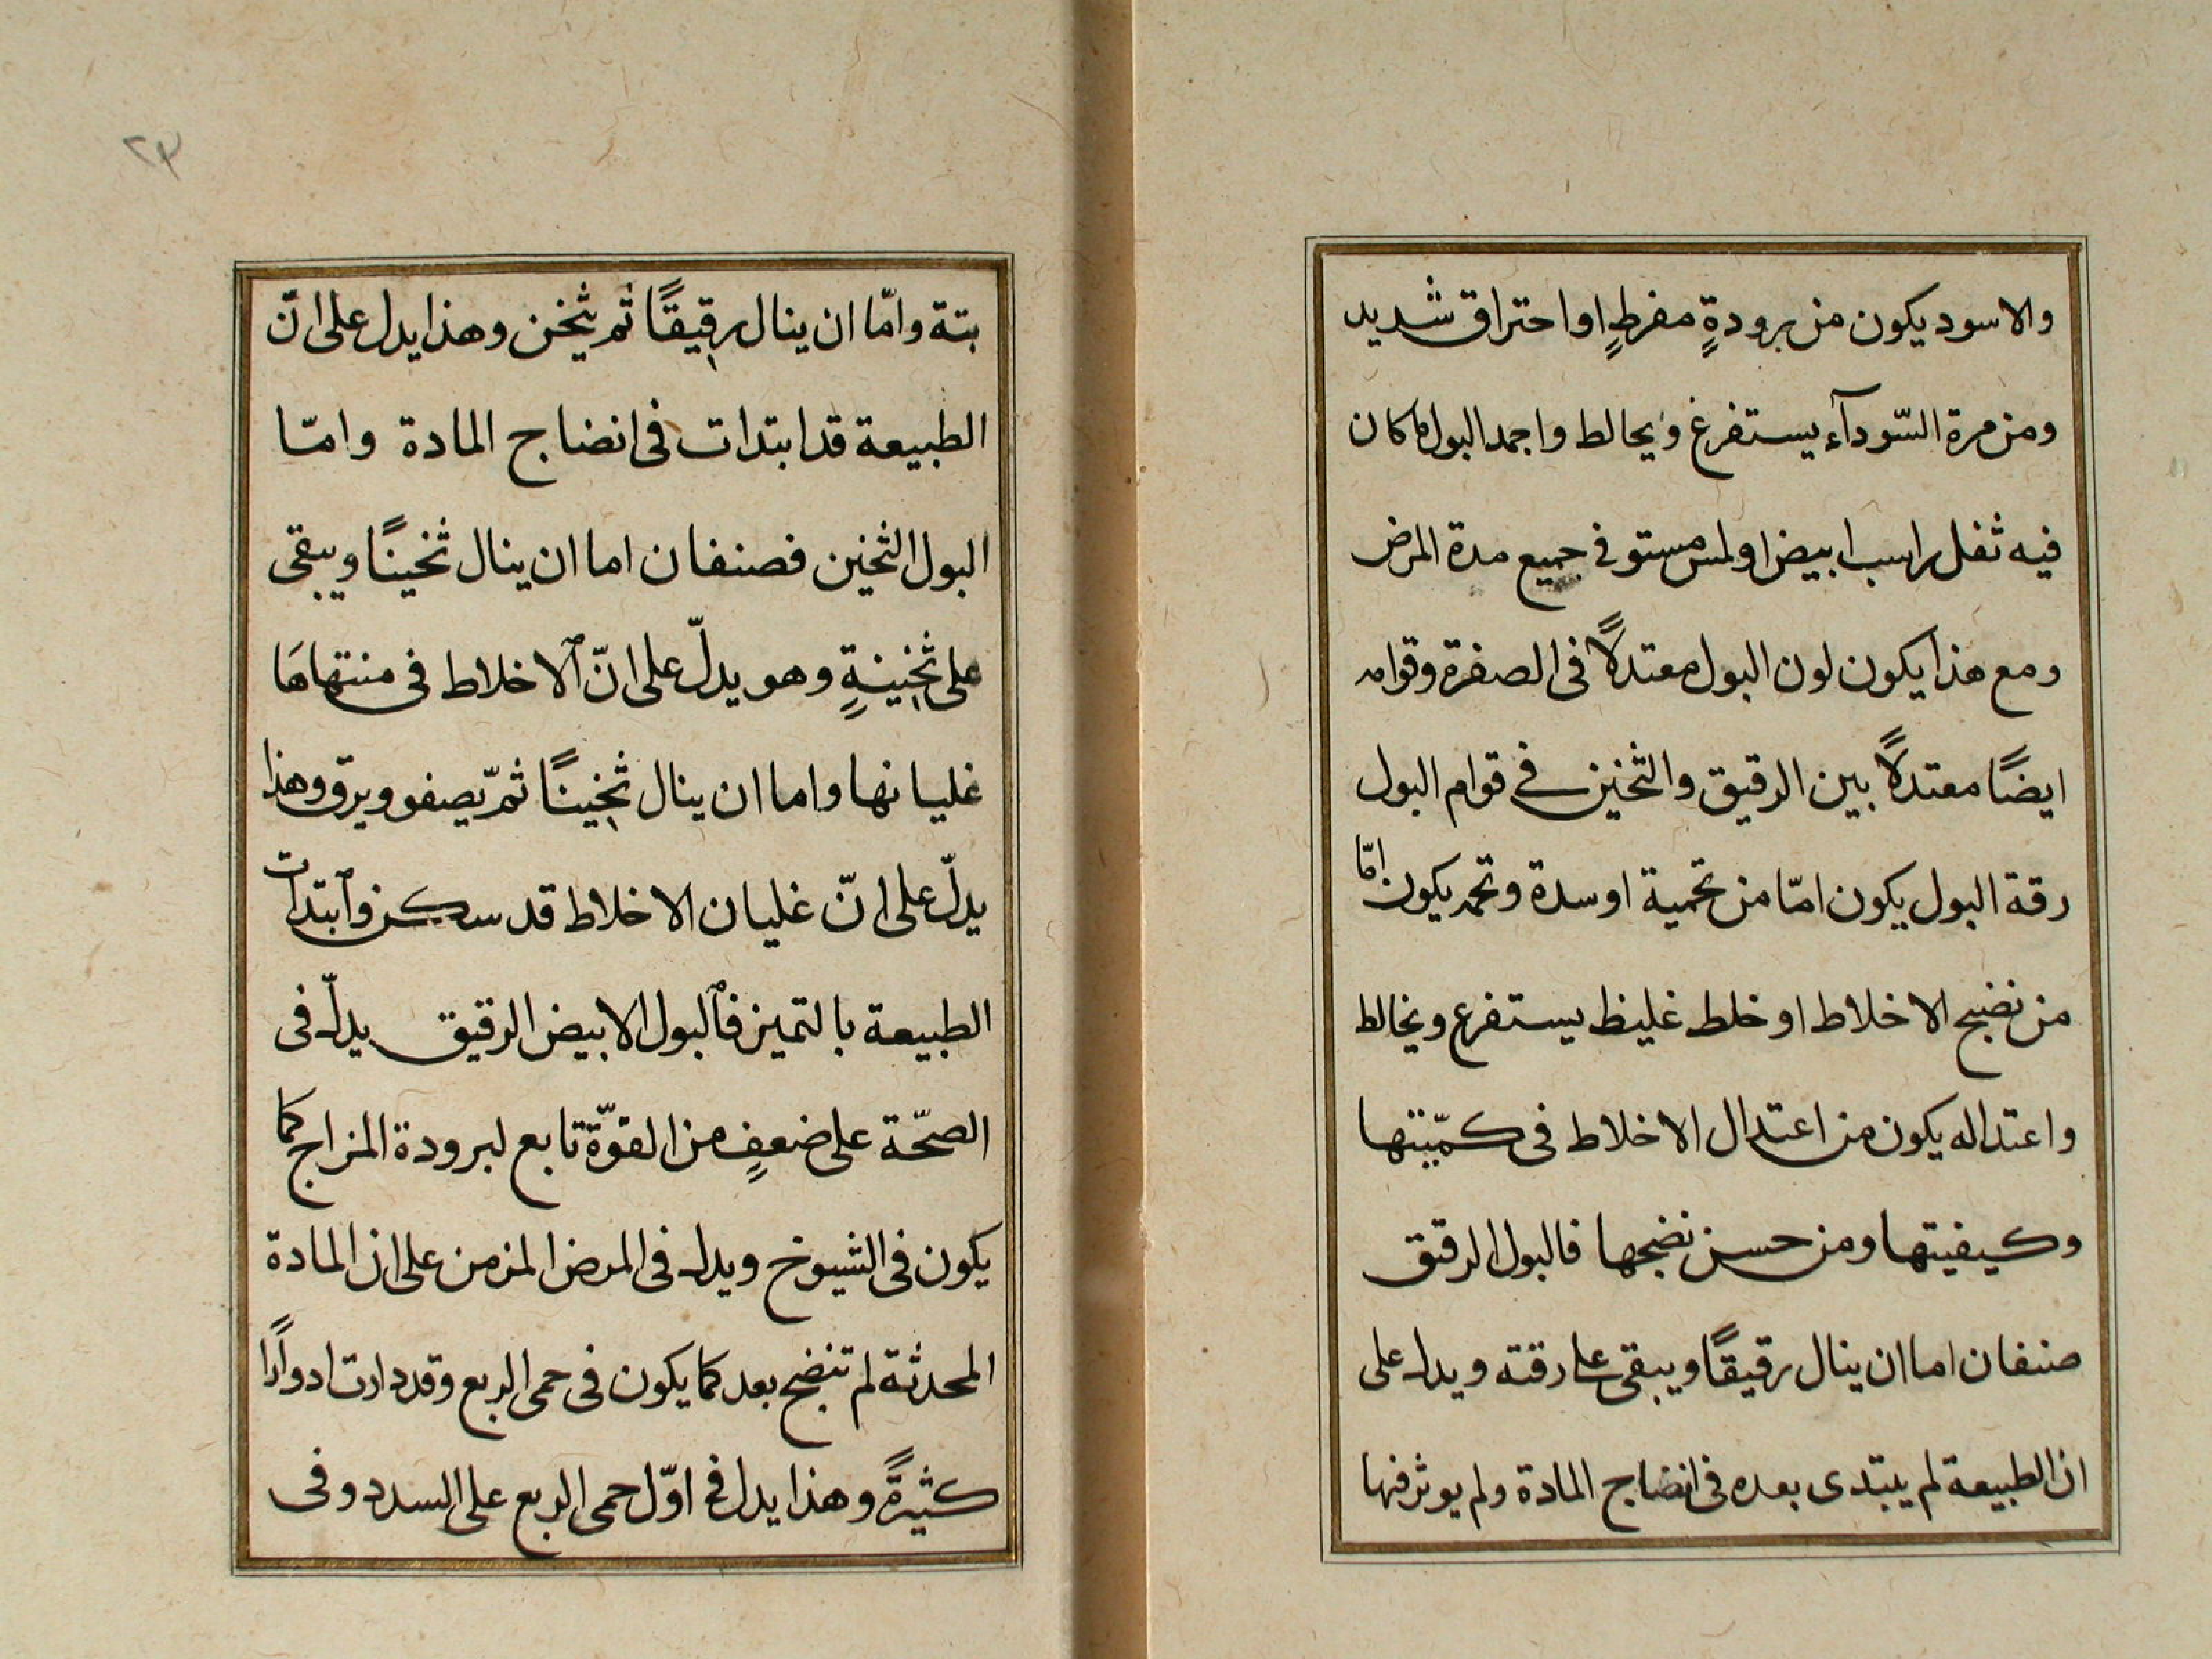 والاسود يكون من برودةٍ مفرطٍ او احتراق شديد
ومن مرة السّودآء يستفرغ ويحالط واجمد البول ما كان
فيه ثفل راسب ابيض املس مستو في جميع مدة المرض
ومع هذا يكون لون البول معتدلاً فى الصفرة وقوامه
ايضًا معتدلاً بين الرقيق والثخين في قوام البول
رقة البول يكون امّا من تخمية او سدة وتخمد يكون امّا
من نضج الاخلاط او خلط غليظ يستفرع ويخالط
واعتداله يكون من اعتدال الاخلاط فى كمّيّتها
وكيفيتها ومن حسن نضجها فالبول الرقيق
صنفان اما ان ينال رقيقًا ويبقى على رقته ويدل على
ان الطبيعة لم يبتدى بعده فى انضاج المادة ولم يوثر فيها
٢٣
بتة وامّا ان ينال رقيقًا ثم يثخن وهذا يدل على انّ
الطبيعة قد ابتدات فى انضاج المادة وامّا
البول الثخين فصنفان اما ان ينال ثخينًا ويبقى
على ثخينةٍ وهو يدلّ على انّ الاخلاط فى منتهاهَا
غليانها واما ان ينال ثخينًا ثمّ يصفو ويرق وهذا
يدلّ على انّ غليان الاخلاط قد سكن وابتدات
الطبيعة بالتميز فالبول الابيض الرقيق يدلّ فى
الصحّة على ضعفٍ من القوّة تابع لبرودة المزاج كما
يكون فى الشيوخ ويدل فى المرض المزمن على ان المادة
المحدثة لم تنضج بعد كما يكون فى حمى الربع وقد دارت ادوارًا
كثيرةً وهذا يدل فى اوّل حمى الربع على السدد وفى